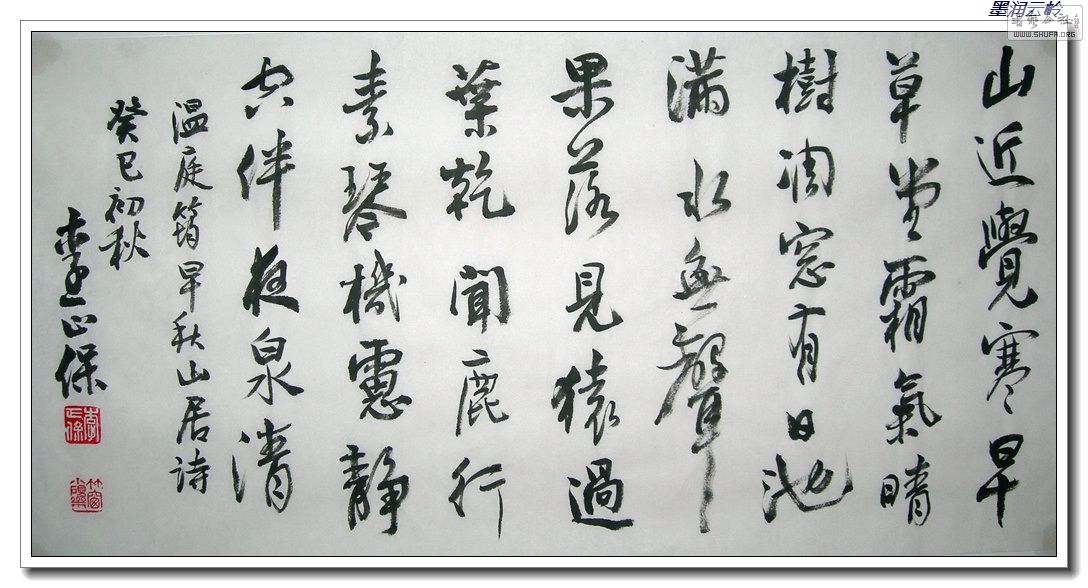 墨润云岭
WWW.SHUFA.ORG
山近覺寒早
草堂霜氣晴
樹凋窓有日池
滿水無聲
果落見猿過
葉乾聞鹿行
素琴機慮靜
空伴夜泉清
温庭筠早秋山居詩
癸巳初秋
李正保
李正保